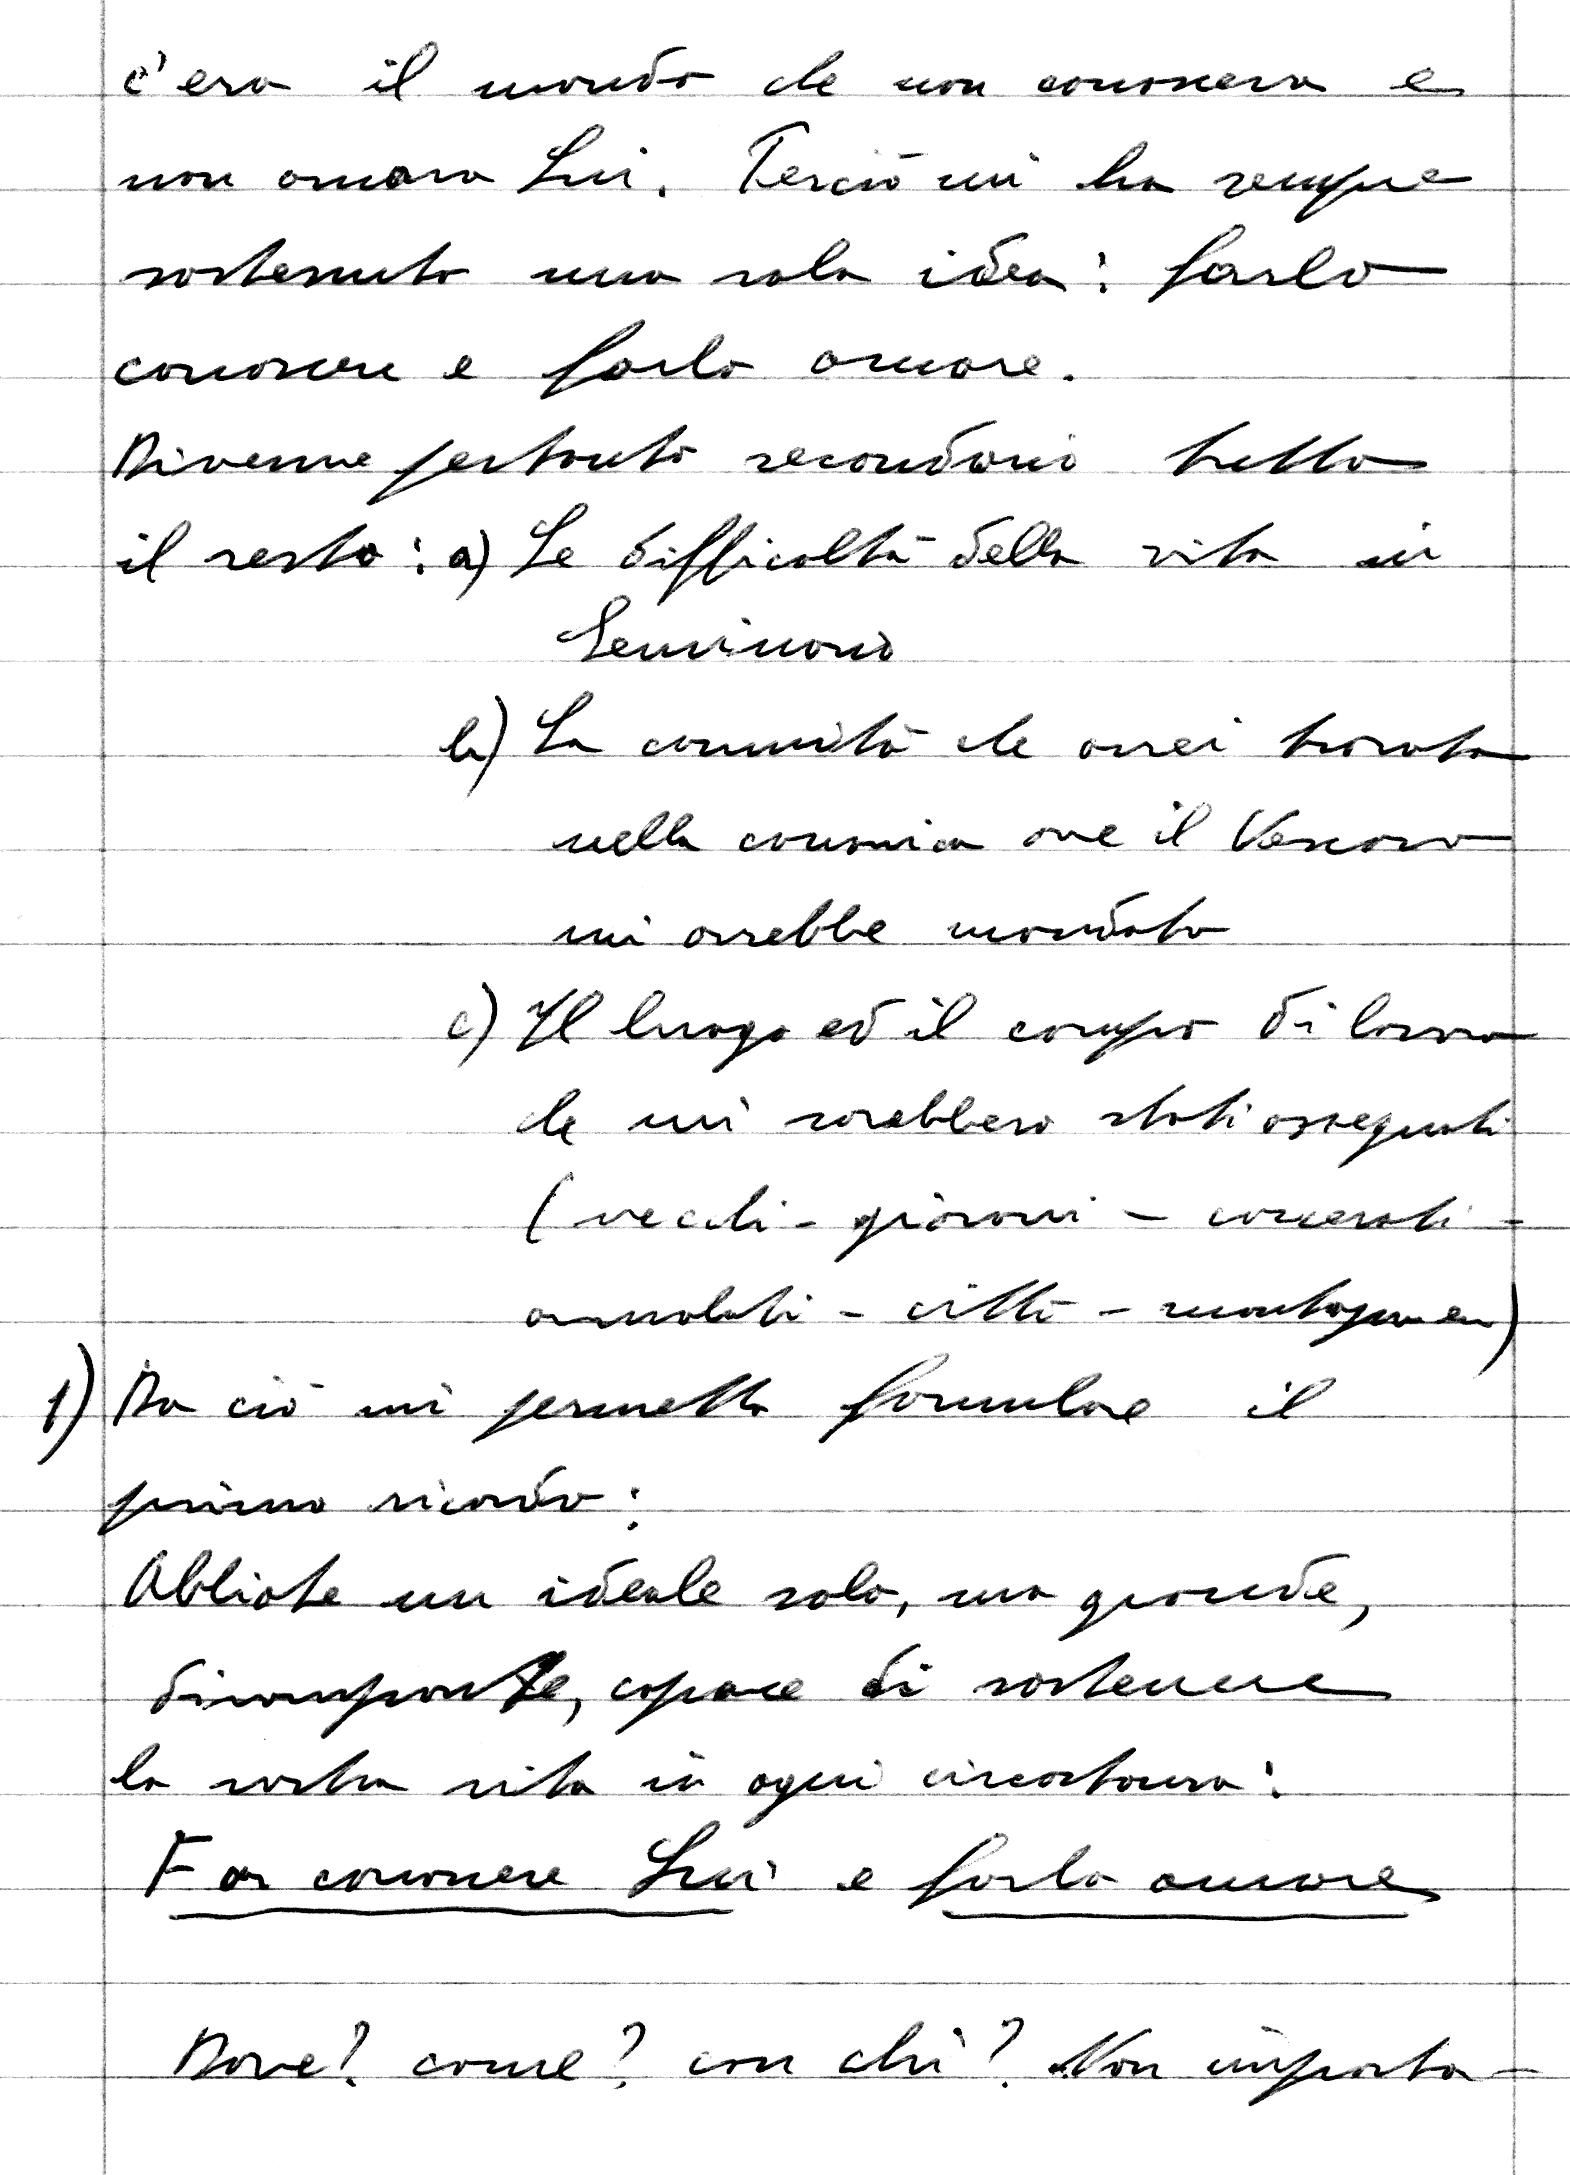 c'era il mondo che non conosceva e
non amava Lui. Perciò mi ha sempre
sostenuto una sola idea: farlo
conoscere e farlo amare.
Divenne pertanto secondario tutto
il resto: a) Le difficoltà della vita in
Seminario
b) La comunità che avrei trovato
nella canonica ove il Vescovo
mi avrebbe mandato
c) Il luogo ed il campo di lavoro
che mi sarebbero stati assegnati
(vecchi - giovani - carcerati -
ammalati - città - montagna)
1) Da ciò mi permetto formulare il
primo ricordo:
Abbiate un ideale solo, ma grande,
dirompente, capace di sostenere
la vostra vita in ogni circostanza:
Far conoscere Lui e farlo amare
Dove? come? con chi? Non importa -